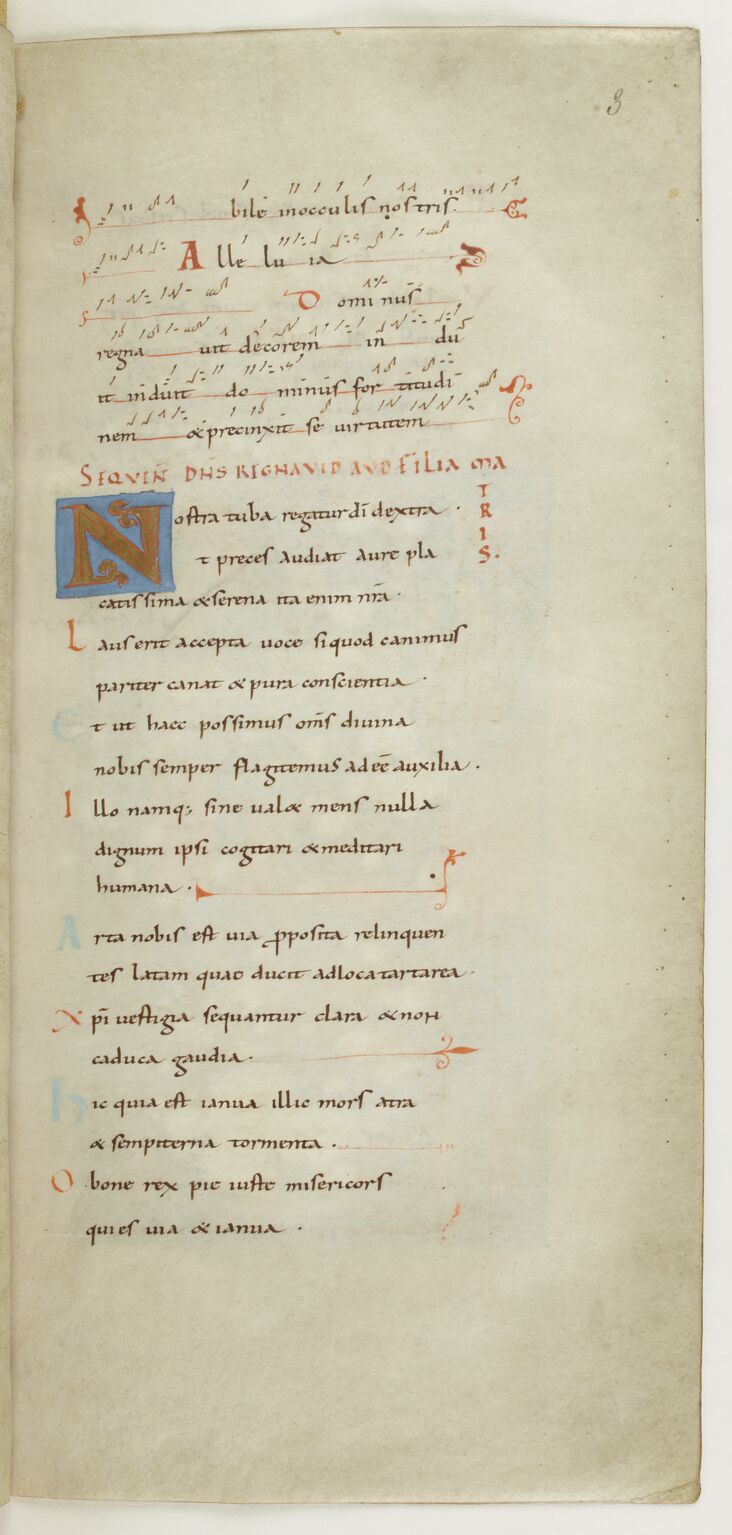 3
bile inocculis nostris.
Alle lu ia
Domi nus
regna uit decorem in du
it induit do minus for titudi
nem & precinxit se uirtutem
SEQUEN DNS REGNAVID AVD FILIA MA
TRIS.
Nostra tuba regatur di dextra ·
t preces audiat aure pla
catissima & serena ita enim nra ·
Laus erit accepta uoce siquod canimus
pariter canat & pura conscientia ·
et ut haec possimus oms diuina
nobis semper flagitemus adeē auxilia .
Illo namq; sine ual& mens nulla
dignum ipsi cogitari & meditari
humana ·
Arta nobis est uia pposita relinquen
tes latam quae ducit adloca tartarea ·
Xpi uestigia sequantur clara & non
caduca gaudia ·
hic quia est ianua illic mors atra
& sempiterna tormenta .
O bone rex pie iuste misericors
qui es uia & ianua ·